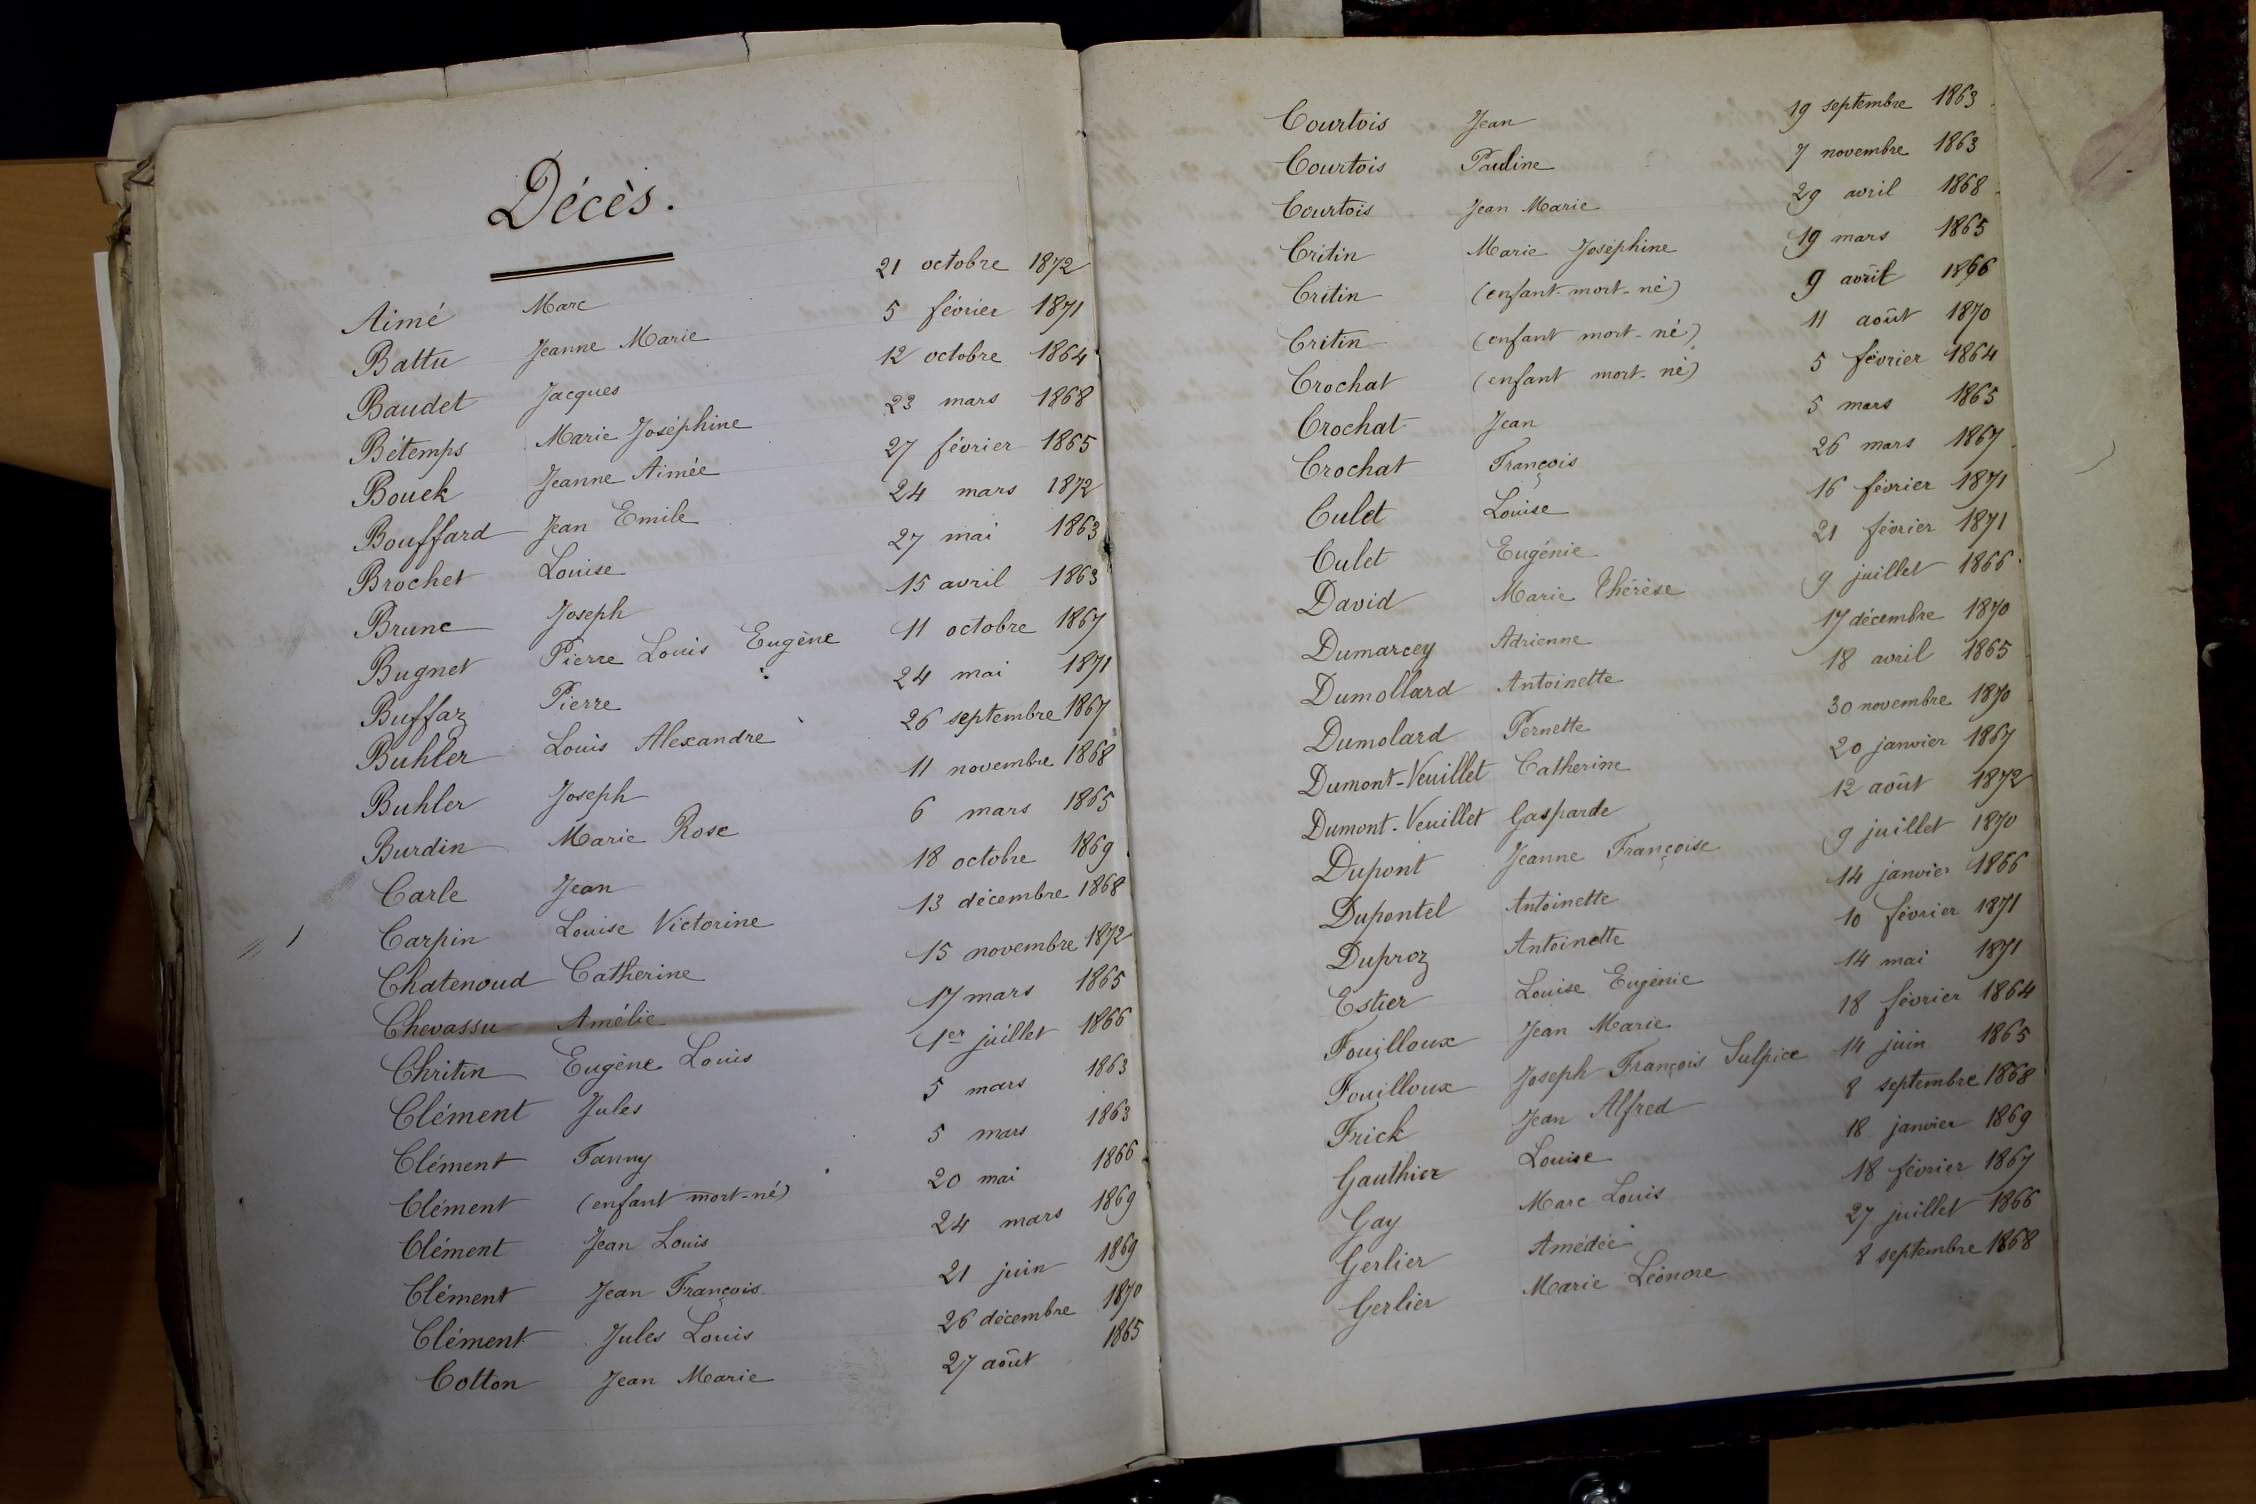 Décès.
Aimé Marc 21 octobre 1872
Battu Jeanne Marie 5 février 1871
Baudet Jacques 12 octobre 1864
Bétemps Marie Joséphine 23 mars 1868
Bouek Jeanne Aimée 27 février 1865
Bouffard Jean Emile 24 mars 1872
Brochet Louise 27 mai 1863
Brune Joseph 15 avril 1863
Bugnet Pierre Louis Eugène 11 octobre 1867
Buffaz Pierre 24 mai 1871
Buhler Louis Alexandre 26 septembre 1867
Buhler Joseph 11 novembre 1868
Burdin Marie Rose 6 mars 1865
Carle Jean 18 octobre 1869
Carpin Louise Victorine 13 décembre 1868
Chatenoud Catherine 15 novembre 1872
Chevassu Amélie 17 mars 1865
Chritin Eugène Louis 1er juillet 1866
Clément Jules 5 mars 1863
Clément Fanny 5 mars 1863
Clément (enfant mort-né) 20 mai 1866
Clément Jean Louis 24 mars 1869
Clément Jean François 21 juin 1869
Clément Jules Louis 26 décembre 1870
Cotton Jean Marie 27 août 1865
Courtois Jean 19 septembre 1863
Courtois Pauline 7 novembre 1863
Courtois Jean Marie 29 avril 1868
Critin Marie Joséphine 19 mars 1865
Critin (enfant mort-né) 9 avril 1866
Critin (enfant mort-né) 11 août 1870
Crochat (enfant mort-né) 5 février 1864
Crochat Jean 5 mars 1865
Crochat François 26 mars 1867
Culet Louise 16 février 1871
Culet Eugénie 21 février 1871
David Marie Thérèse 9 juillet 1866
Dumarcey Adrienne 17 décembre 1870
Dumollard Antoinette 18 avril 1865
Dumolard Pernette 30 novembre 1870
Dumont-Veuillet Catherine 20 janvier 1867
Dumont-Veuillet Gasparde 12 août 1872
Dupont Jeanne Françoise 9 juillet 1870
Dupontel Antoinette 14 janvier 1866
Duproz Antoinette 10 février 1871
Estier Louise Eugénie 14 mai 1871
Fouilloux Jean Marie 18 février 1864
Fouilloux Joseph François Sulpice 14 juin 1865
Frick Jean Alfred 8 septembre 1868
Gauthier Louise 18 janvier 1869
Gay Marc Louis 18 février 1867
Gerlier Amédée 27 juillet 1866
Gerlier Marie Léonore 8 septembre 1868